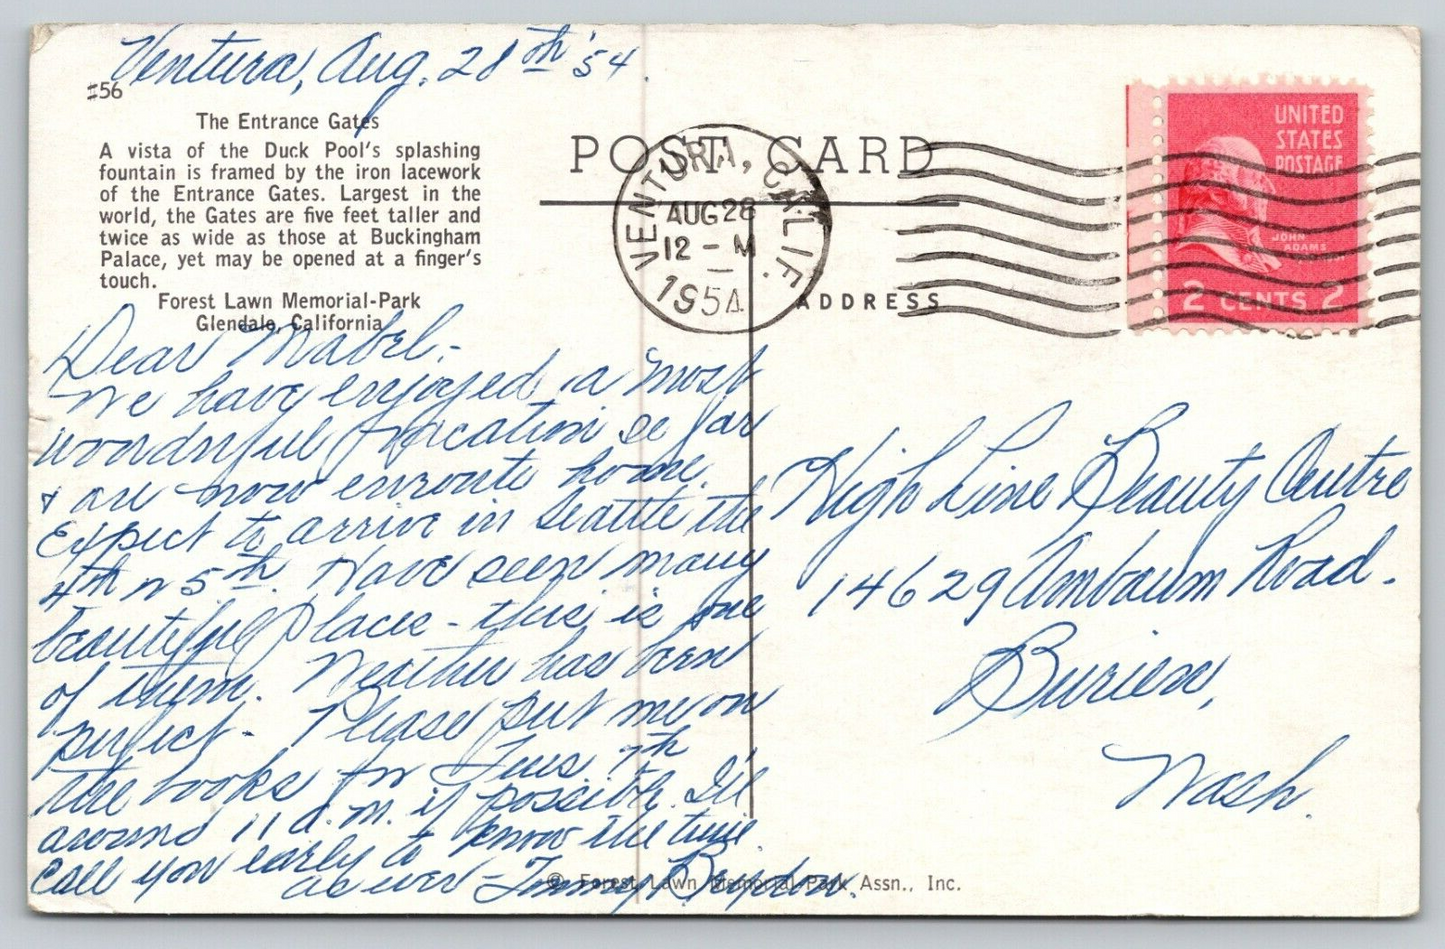 Ventura, Aug. 28th '54.
#56
The Entrance Gates
A vista of the Duck Pool's splashing
fountain is framed by the iron lacework
of the Entrance Gates. Largest in the
world, the Gates are five feet taller and
twice as wide as those at Buckingham
Palace, yet may be opened at a finger's
touch.
Forest Lawn Memorial-Park
Glendale, California
Dear Mabel-
We have enjoyed a most
wonderful vacation so far
& are now enroute home.
Expect to arrive in Seattle the
4th or 5th. Have seen many
beautiful places - this is one
of them. Weather has been
perfect - Please put me on
the books for Tues 7th
around 11 a.m. if possible. I'll
call you early to know the time.
as ever -
POST CARD
VENTURA, CALIF.
AUG 28
12 - M
1954
ADDRESS
UNITED
STATES
POSTAGE
JOHN
ADAMS
2 CENTS 2
High Line Beauty Centre
14629 Ambaum Road.
Burien,
Wash.
© Forest Lawn Memorial-Park Assn., Inc.